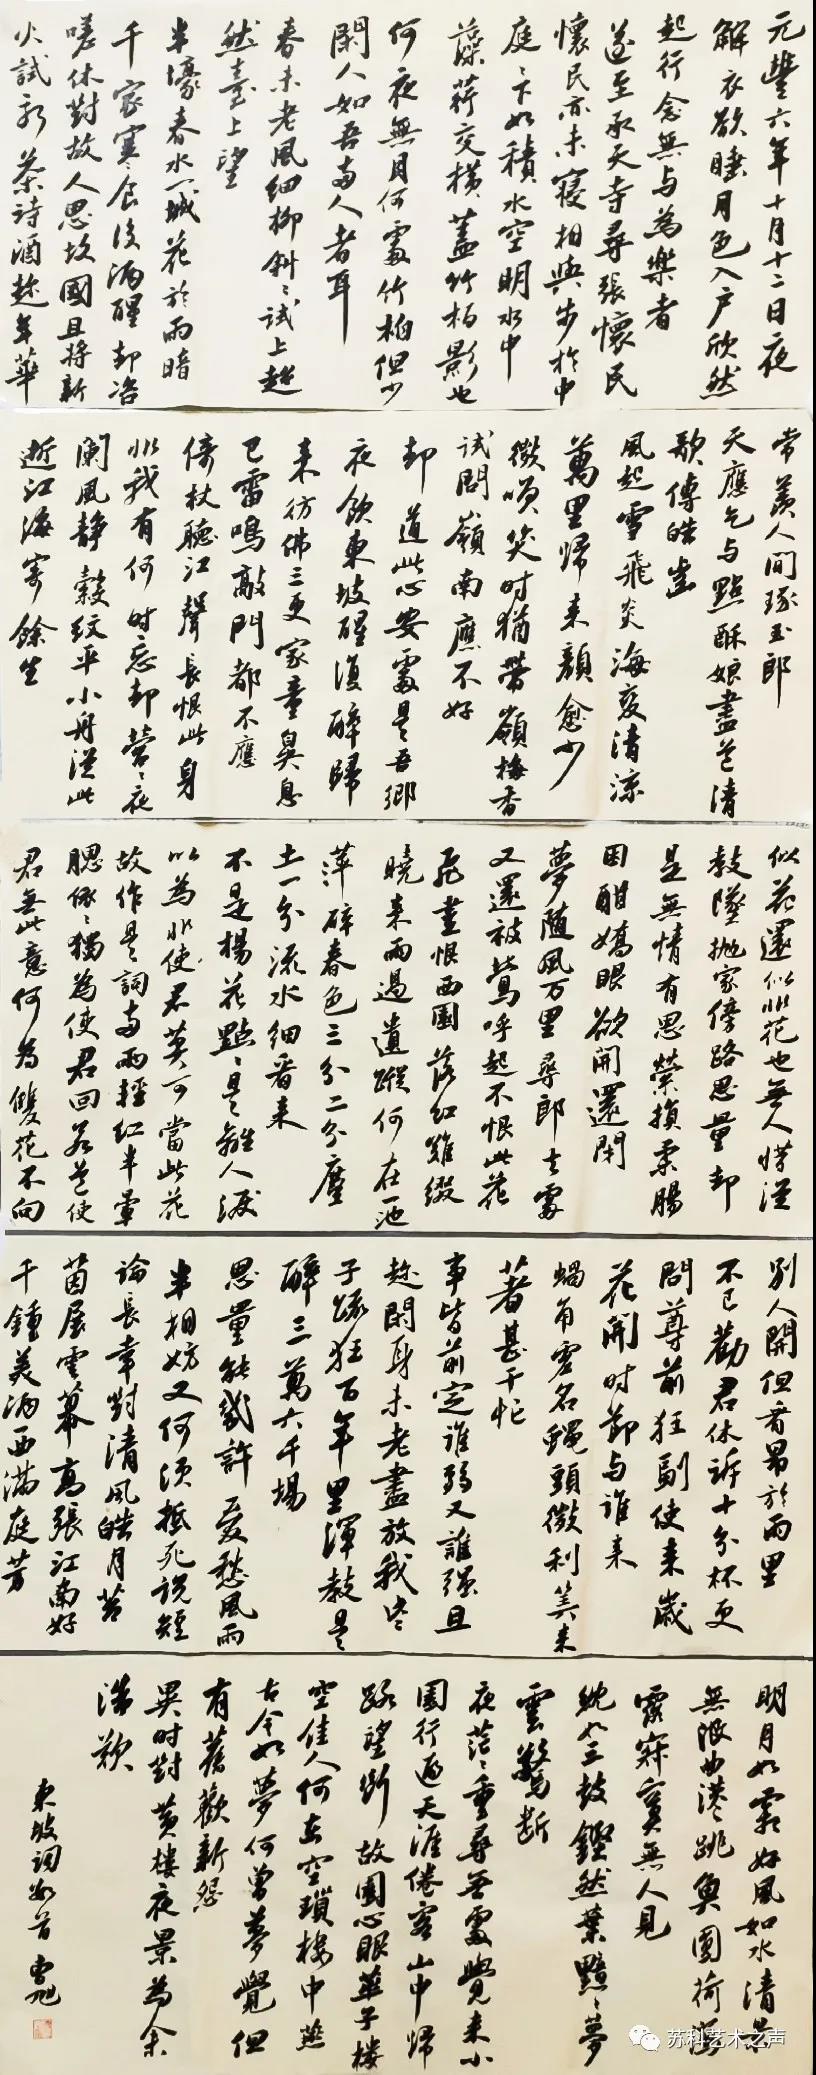 元豐六年十月十二日夜
解衣欲睡月色入户欣然
起行念無与為樂者
遂至承天寺尋張懷民
懷民亦未寢相與步於中
庭〻下如積水空明水中
藻荇交橫蓋竹柏影也
何夜無月何處竹柏但少
閑人如吾兩人者耳
春未老風細柳斜〻試上超
然臺上望
半壕春水一城花於雨暗
千家寒食後酒醒却咨
嗟休對故人思故國且將新
火試新茶詩酒趁年華
常羨人間琢玉郎
天應乞与點酥娘盡道清
歌傳皓齒
風起雪飛炎海變清涼
萬里歸來顏愈少
微笑时猶帶嶺梅香
試問嶺南應不好
却道此心安處是吾鄉
夜飲東坡醒復醉歸
来彷彿三更家童鼻息
已雷鳴敲門都不應
倚杖聽江聲長恨此身
非我有何时忘却營〻夜
闌風静縠紋平小舟従此
逝江海寄餘生
似花還似非花也無人惜従
教墜抛家傍路思量却
是無情有思縈損柔腸
困酣嬌眼欲開還閉
夢随風万里尋郎去處
又還被鶯呼起不恨此花
飛盡恨西園落紅難綴
曉来雨過遺蹤何在一池
萍碎春色三分二分塵
土一分流水細看来
不是楊花點〻是離人淚
以為非使君莫可當此花
故作是詞兩兩輕紅半暈
腮依〻獨為使君回若道使
君無此意何為雙花不向
別人開但看於雨里
不已勸君休訴十分杯更
問尊前狂副使来歲
花開时節与誰来
蝸角虚名蠅頭微利算来
著甚干忙
事皆前定誰弱又誰强且
趁閑身未老盡放我些
子疏狂百年里渾教是
醉三萬六千場
思量能幾許憂愁風雨
半相妨又何須抵死說短
論長幸對清風皓月苔
茵展雲幕高張江南好
千鍾美酒一曲滿庭芳
明月如霜好風如水清景
無限曲港跳魚圓荷瀉
露寂寞無人見
紞如三鼓鏗然葉黯〻夢
雲驚斷
夜茫〻重尋無處覺来小
園行遍天涯倦客山中歸
路望斷故園心眼燕子樓
空佳人何在空瑣樓中燕
古今如夢何曾夢覺但
有舊歡新怨
異时對黄樓夜景為余
浩歎
東坡詞数首
苏科艺术之声